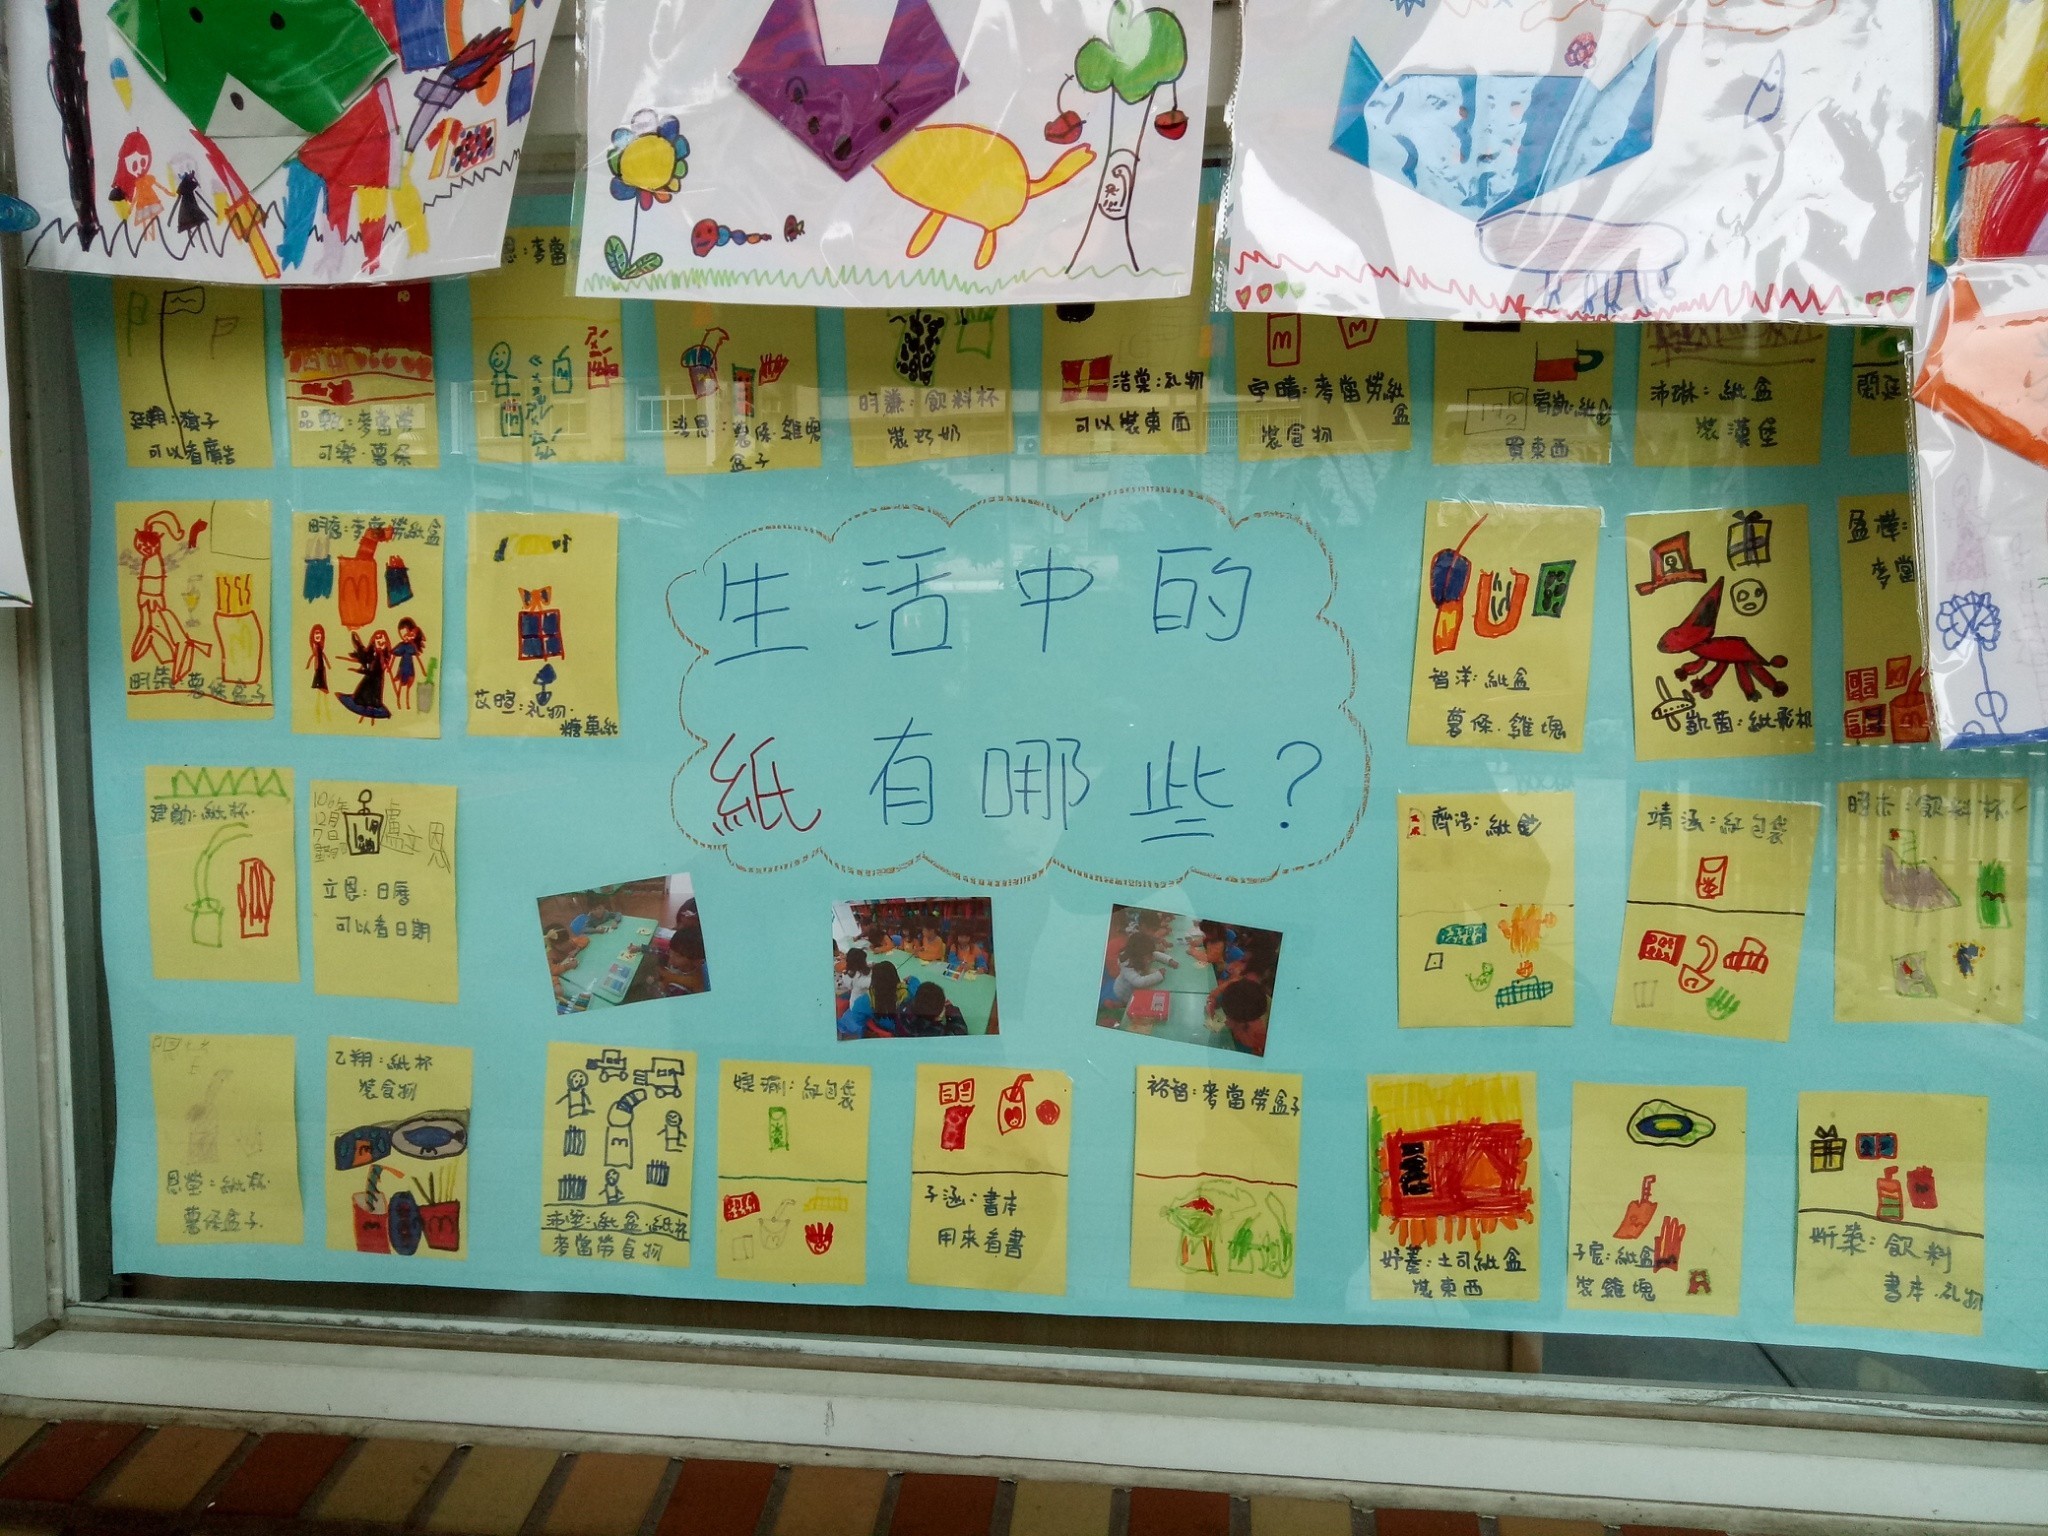 恩:麥當
廷翔:旗子
可以看廣告
凱:麥當勞
可樂.薯條
薯條.雞塊
盒子
明濂:飲料杯
裝巧奶
浩棠:礼物
可以裝東西
宇晴:麥當勞紙
盒
裝食物
買東西
沛琳:紙盒
裝漢堡
薯條盒子
麥當勞紙盒
艾暄:礼物.
糖菓紙
生活中的
紙有哪些?
智洋:紙盒
薯條.雞塊
凱茵:紙飛机
麥當
建勛:紙杯
106年
12月
7日
盧立恩
立恩:日曆
可以看日期
紙鈔
靖涵:紅包袋
飲料杯
恩瑩:紙杯.
薯條盒子.
乙翔:紙杯
裝食物
紙盒.紙杯
麥當勞食物
紅包袋
子涵:書本
用來看書
裕智:麥當勞盒子
妤蓁:土司紙盒
裝東西
子宸:紙盒
裝雞塊
妍蓁:飲料
書本.礼物